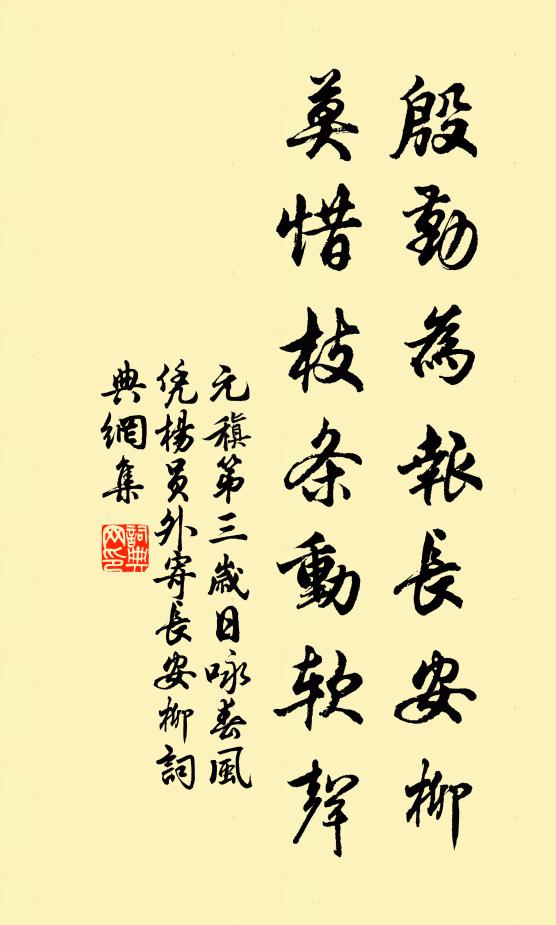 殷勤為報長安柳
莫惜枝条動軟聲
元稹第三歲日咏春風
凭楊員外寄長安柳詞
典網集
詞典网印